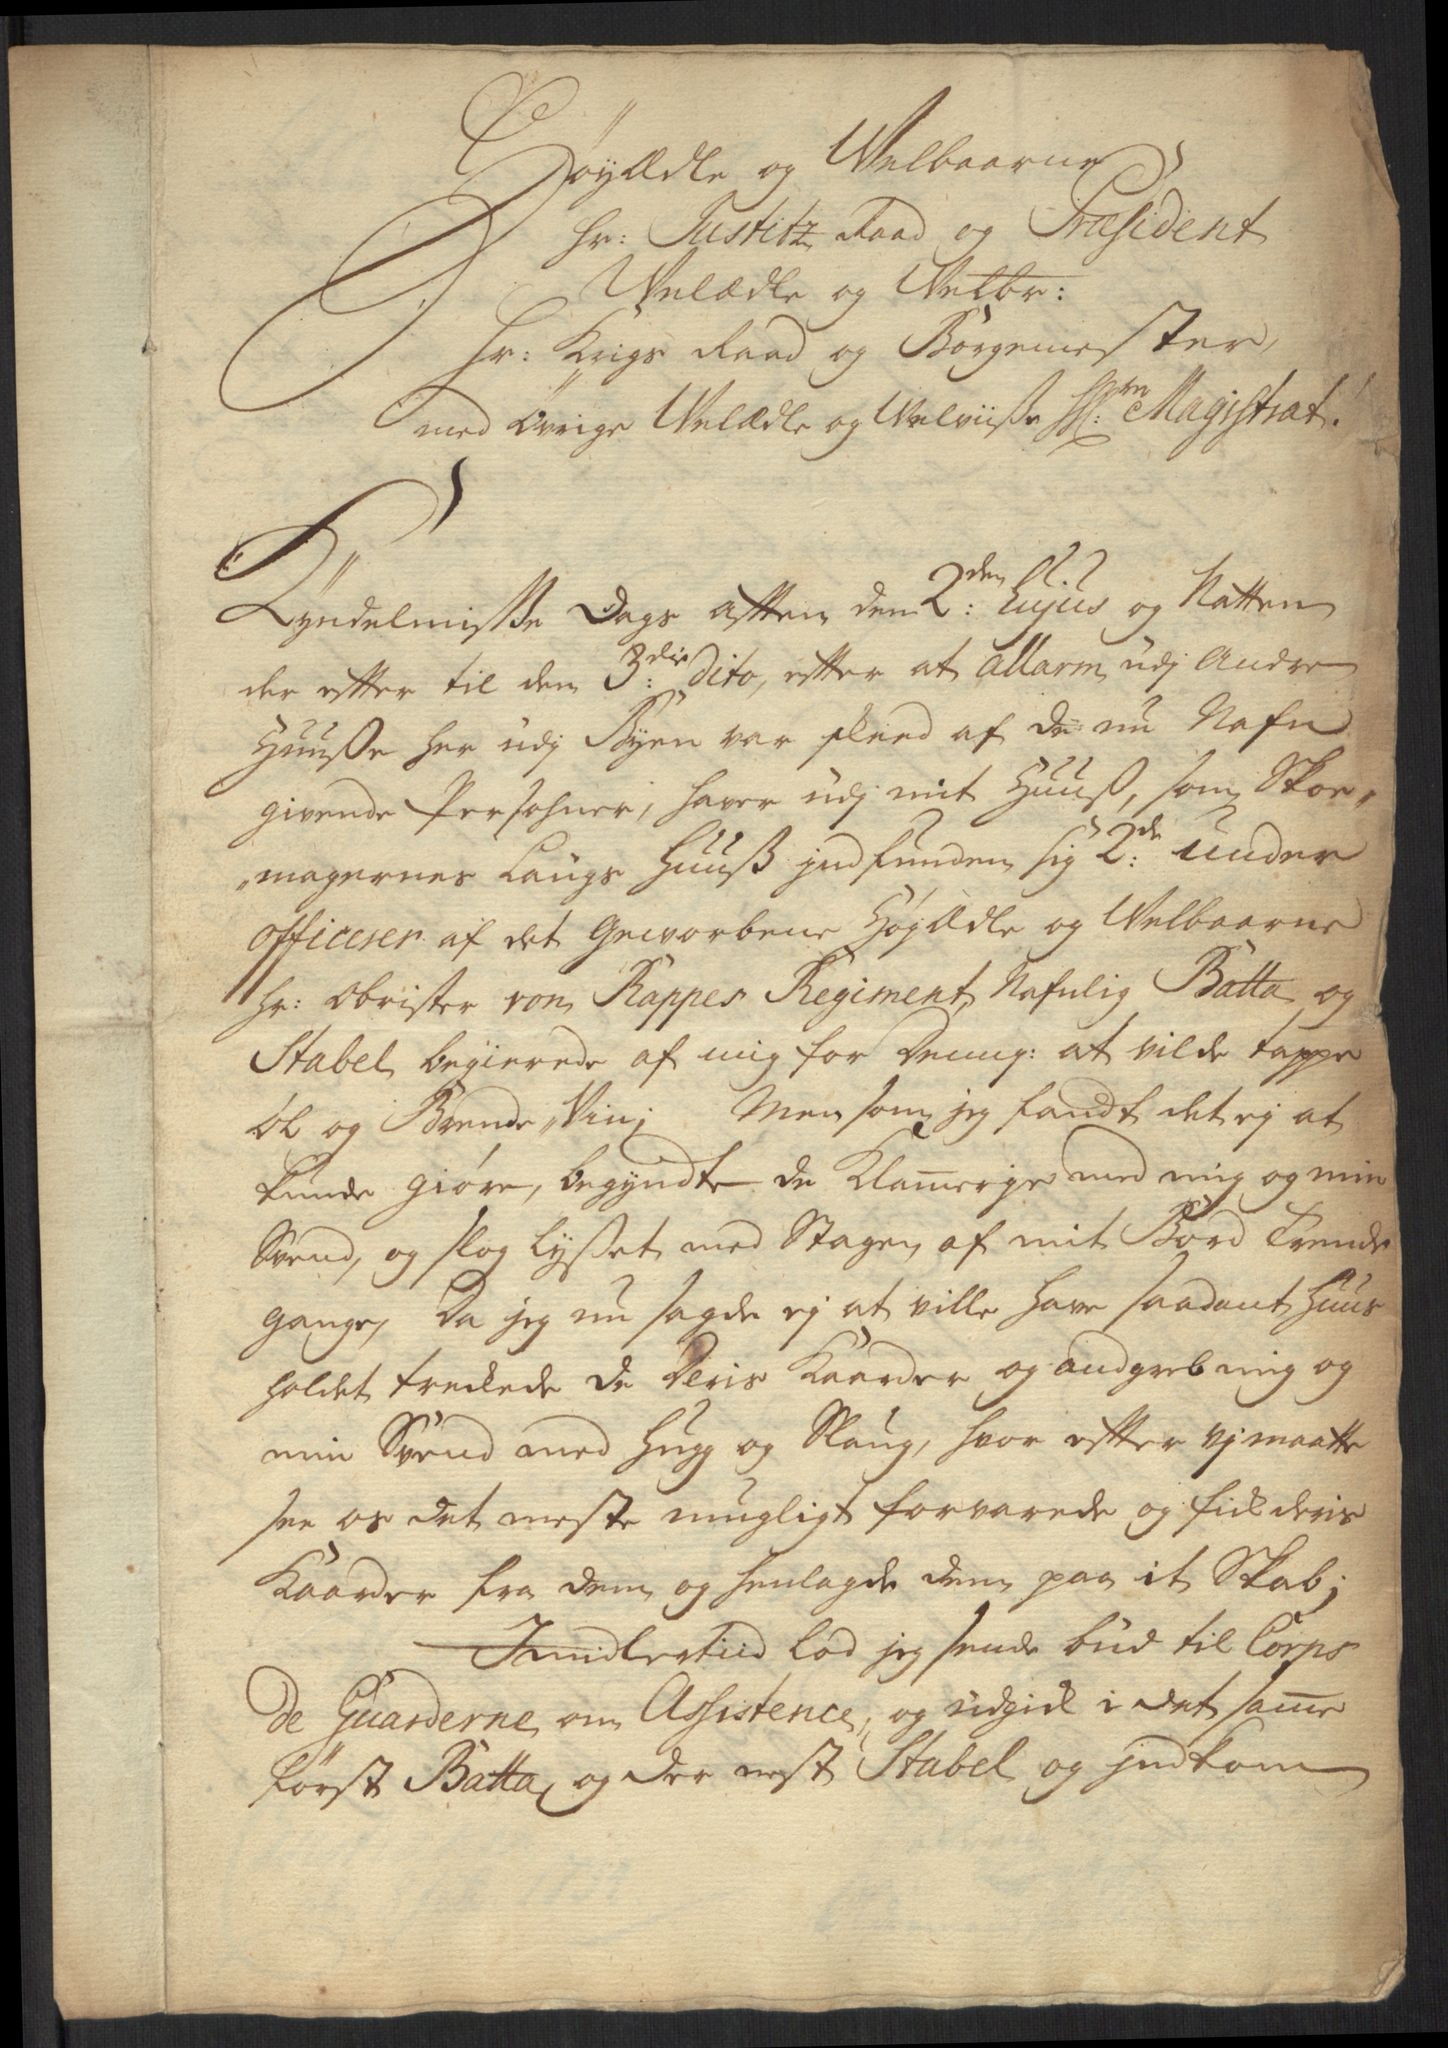 Høyædle og Welbaarne
Hr: Justitz Raad og Præsident
Welædle og Welbr:
Hr: Krigs Raad og Borgemester,
med øvrige Welædle og Welviisse HHr:ne Magistrat!
Kyndelmisse Dags Aften den 2:den hujus og Natten
der effter til den 3:die dito, effter at allarm udj Andre
Huusse her udj Byen var skeed af de nu Nafn
givende Persohner, haver udj mit Huuss, som Skoe„
„magernes Laugs Huuss indfunden sig 2:de Under
officeser af det Geworbene Høyædle og Welbaarne
Hr: Obrister von Kappes Regiment, Nafnlig Batta og
Stabel begierede af mig for Dennem: at vilde tappe
øl og Brende„Viin; Men som jeg fandt det ej at
kunde giøre, begyndte de Klammerje med mig og min
Svend, og slog Lysset med Stagen af mit Bord trende
gange, Da jeg nu sagde ej at ville have saadant Huus
holdet trækede de Deris Kaarder og andgreb mig og
min Svend med Hugg og Slaug, hvor effter vj maatte
see os det meste mugligt forvarede og fik deris
Kaarder fra dem og henlagde dem paa it Skab;
Imidlertiid lod jeg sende bud til Corps
de Guarderne om Assistence, og udgik i det samme
først Batta, og der nest Stabel og indkom